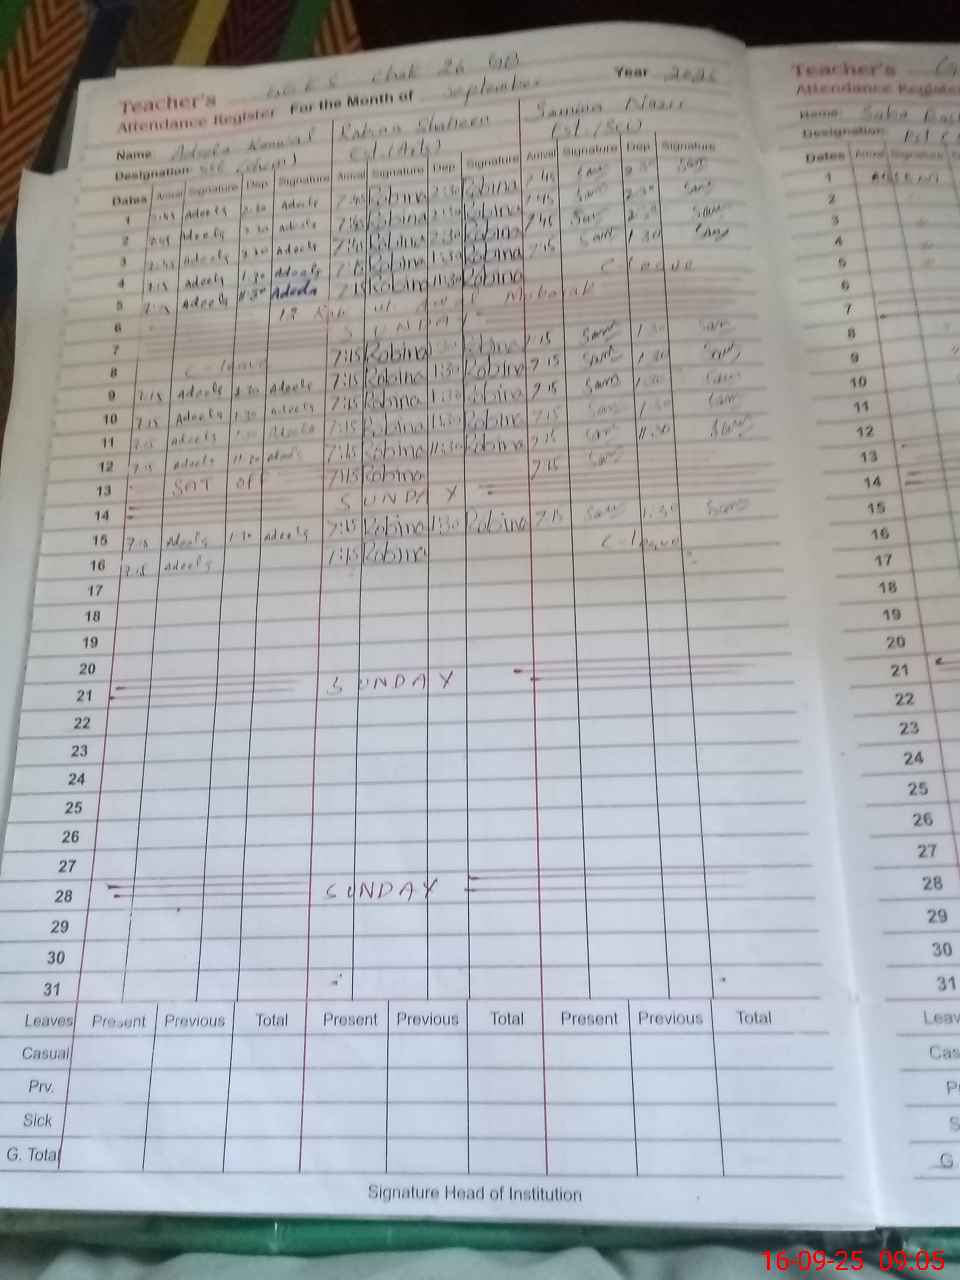 Teacher's GGES Chak 26 GB
Attendance Register For the Month of September Year 2025
Name Adeela Kanwal Rabina Shaheen Samina Nazir
Designation SSE (chem) Est. (Arts) Est. (Sci)
Dates Arrival Signature Dep Signature Arrival Signature Dep Signature Arrival Signature Dep Signature
1 Adeela 2:30 Adeela 7:45 Robina 2:30 Robina 7:45 Sam 2:30 Sam
2 Adeela 2:30 Adeela 7:45 Robina 2:30 Robina 7:45 Sam 2:30 Sam
3 Adeela 2:30 Adeela 7:45 Robina Robina 7:45 Sam 2:30 Sam
4 7:15 Adeela 1:30 Adeela 7:15 Robina 1:30 Robina 7:15 Sam 1:30 Sam
5 7:15 Adeela 11:30 Adeela 7:15 Robina 11:30 Robina C leave
6 12 Rabi ul Awal Mubarak
7 SUNDAY
8 C-leave 7:15 Robina 1:30 Robina 7:15 Sam 1:30 Sam
9 7:15 Adeela 1:30 Adeela 7:15 Robina 1:30 Robina 7:15 Sam 1:30 Sam
10 7:15 Adeela 1:30 Adeela 7:15 Robina 1:30 Robina 7:15 Sam 1:30 Sam
11 7:15 Adeela 1:30 Adeela 7:15 Robina 1:30 Robina 7:15 Sam 1:30 Sam
12 7:15 Adeela 11:30 Adeela 7:15 Robina 11:30 Robina 7:15 Sam 11:30 Sam
13 SAT OFF 7:15 Robina 7:15 Sam
14 SUNDAY
15 7:15 Adeela 1:30 Adeela 7:15 Robina 1:30 Robina 7:15 Sam 1:30 Sam
16 7:15 Adeela 7:15 Robina C-leave
17
18
19
20
21 SUNDAY
22
23
24
25
26
27
28 SUNDAY
29
30
31
Leaves Present Previous Total Present Previous Total Present Previous Total
Casual
Prv.
Sick
G. Total
Signature Head of Institution
Teacher's
Attendance Register
Name Saba
Designation
Dates Arrival Signature
1
2
3
4
5
6
7
8
9
10
11
12
13
14
15
16
17
18
19
20
21
22
23
24
25
26
27
28
29
30
31
Leav
Cas
P
S
G.
16-09-25 09.05